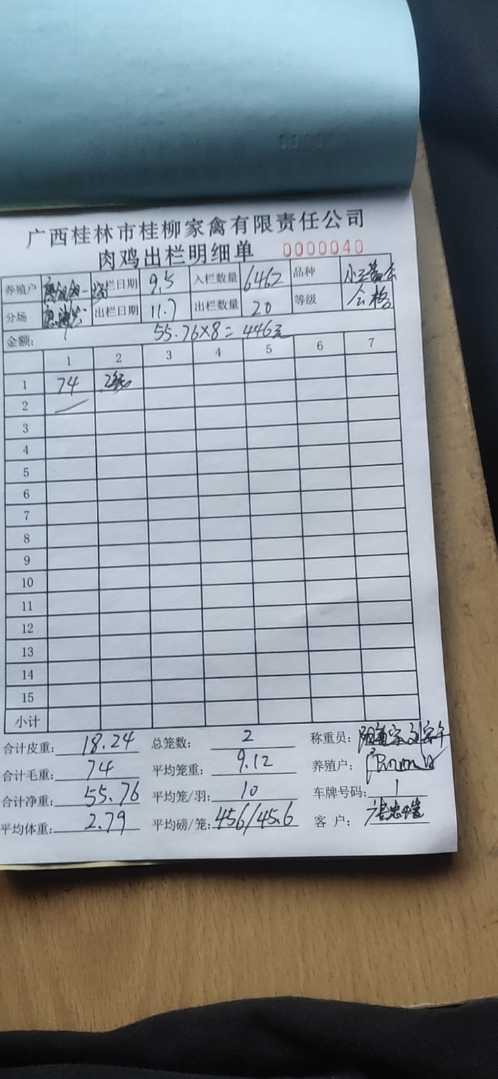 广西桂林市桂柳家禽有限责任公司
肉鸡出栏明细单 0000040
养殖户 栏日期 9.5 入栏数量 6462 品种
分场 出栏日期 11.7 出栏数量 20 等级 合格
金额: 55.76×8=446元
1 2 3 4 5 6 7
1 74 2笼
2
3
4
5
6
7
8
9
10
11
12
13
14
15
小计
合计皮重: 18.24 总笼数: 2 称重员:
合计毛重: 74 平均笼重: 9.12 养殖户:
合计净重: 55.76 平均笼/羽: 10 车牌号码: 1
平均体重: 2.79 平均磅/笼: 456/45.6 客户: